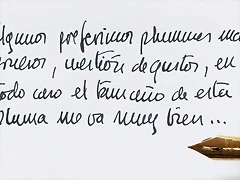 algunos preferimos plumones más
gruesos, cuestión de gustos, en
todo caso el tamaño de esta
pluma me va muy bien...